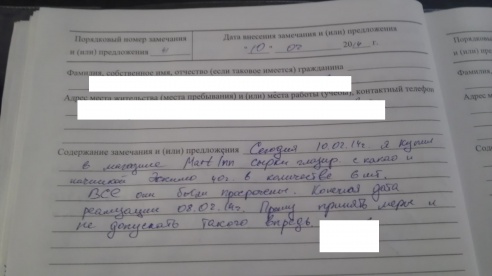 Порядковый номер замечания
и (или) предложения
Дата внесения замечания и (или) предложения
10 07 2014 г.
Фамилия, собственное имя, отчество (если таковое имеется) гражданина
Адрес места жительства (места пребывания) и (или) места работы (учебы), контактный телефон
Содержание замечания и (или) предложения Сегодня 10.07.14г. я купил
в магазине Mart Inn сырки глазир с какао и
начинкой 40г. в количестве 6 шт.
ВСЕ они были просрочены. Конечная дата
реализации 08.07.14г. Прошу принять меры и
не допускать такого впредь
Порядковый
и (или) предл
Фамилия, со
Адрес места
Содержание